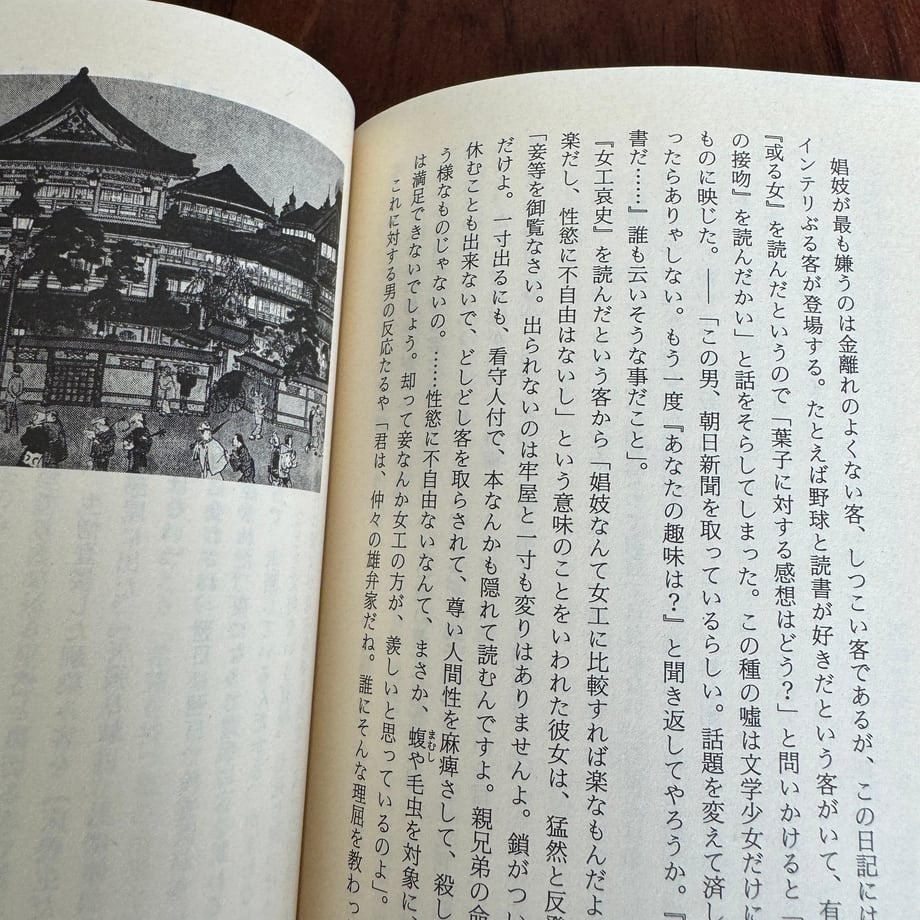 娼妓が最も嫌うのは金離れのよくない客、しつこい客であるが、この日記には
インテリぶる客が登場する。たとえば野球と読書が好きだという客がいて、有
『或る女』を読んだというので「葉子に対する感想はどう？」と問いかけると
の接吻』を読んだかい」と話をそらしてしまった。この種の嘘は文学少女だけに
ものに映じた。――「この男、朝日新聞を取っているらしい。話題を変えて済し
ったらありゃしない。もう一度『あなたの趣味は？』と聞き返してやろうか。『
書だ……』誰も云いそうな事だこと」。
『女工哀史』を読んだという客から「娼妓なんて女工に比較すれば楽なもんだよ
楽だし、性慾に不自由はないし」という意味のことをいわれた彼女は、猛然と反
「妾等を御覧なさい。出られないのは牢屋と一寸も変りはありませんよ。鎖がつい
だけよ。一寸出るにも、看守人付で、本なんかも隠れて読むんですよ。親兄弟の命
休むことも出来ないで、どしどし客を取らされて、尊い人間性を麻痺さして、殺し
う様なものじゃないの。……性慾に不自由ないなんて、まさか、蝮や毛虫を対象に、
は満足できないでしょう。却って妾なんか女工の方が、羨しいと思っているのよ」。
これに対する男の反応たるや「君は、仲々の雄弁家だね。誰にそんな理屈を教わっ